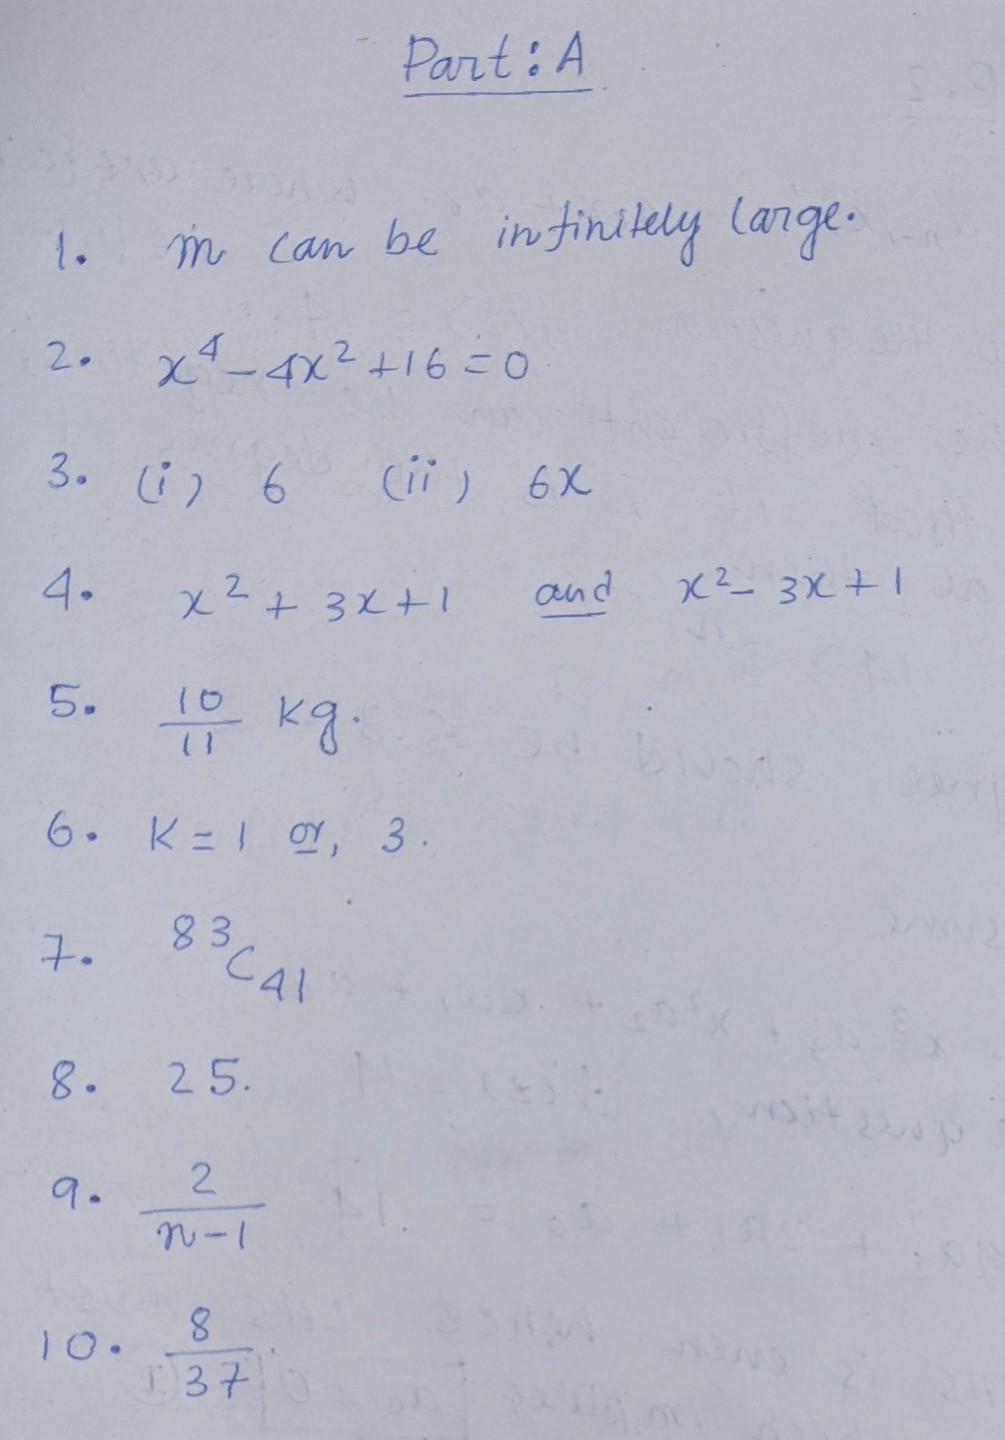 Part: A
1. m can be infinitely large.
2. x⁴ - 4x² + 16 = 0
3. (i) 6 (ii) 6x
4. x² + 3x + 1 and x² - 3x + 1
5. 10/11 kg.
6. K = 1 or, 3.
7. ⁸³C₄₁
8. 25.
9. 2/(n-1)
10. 8/37